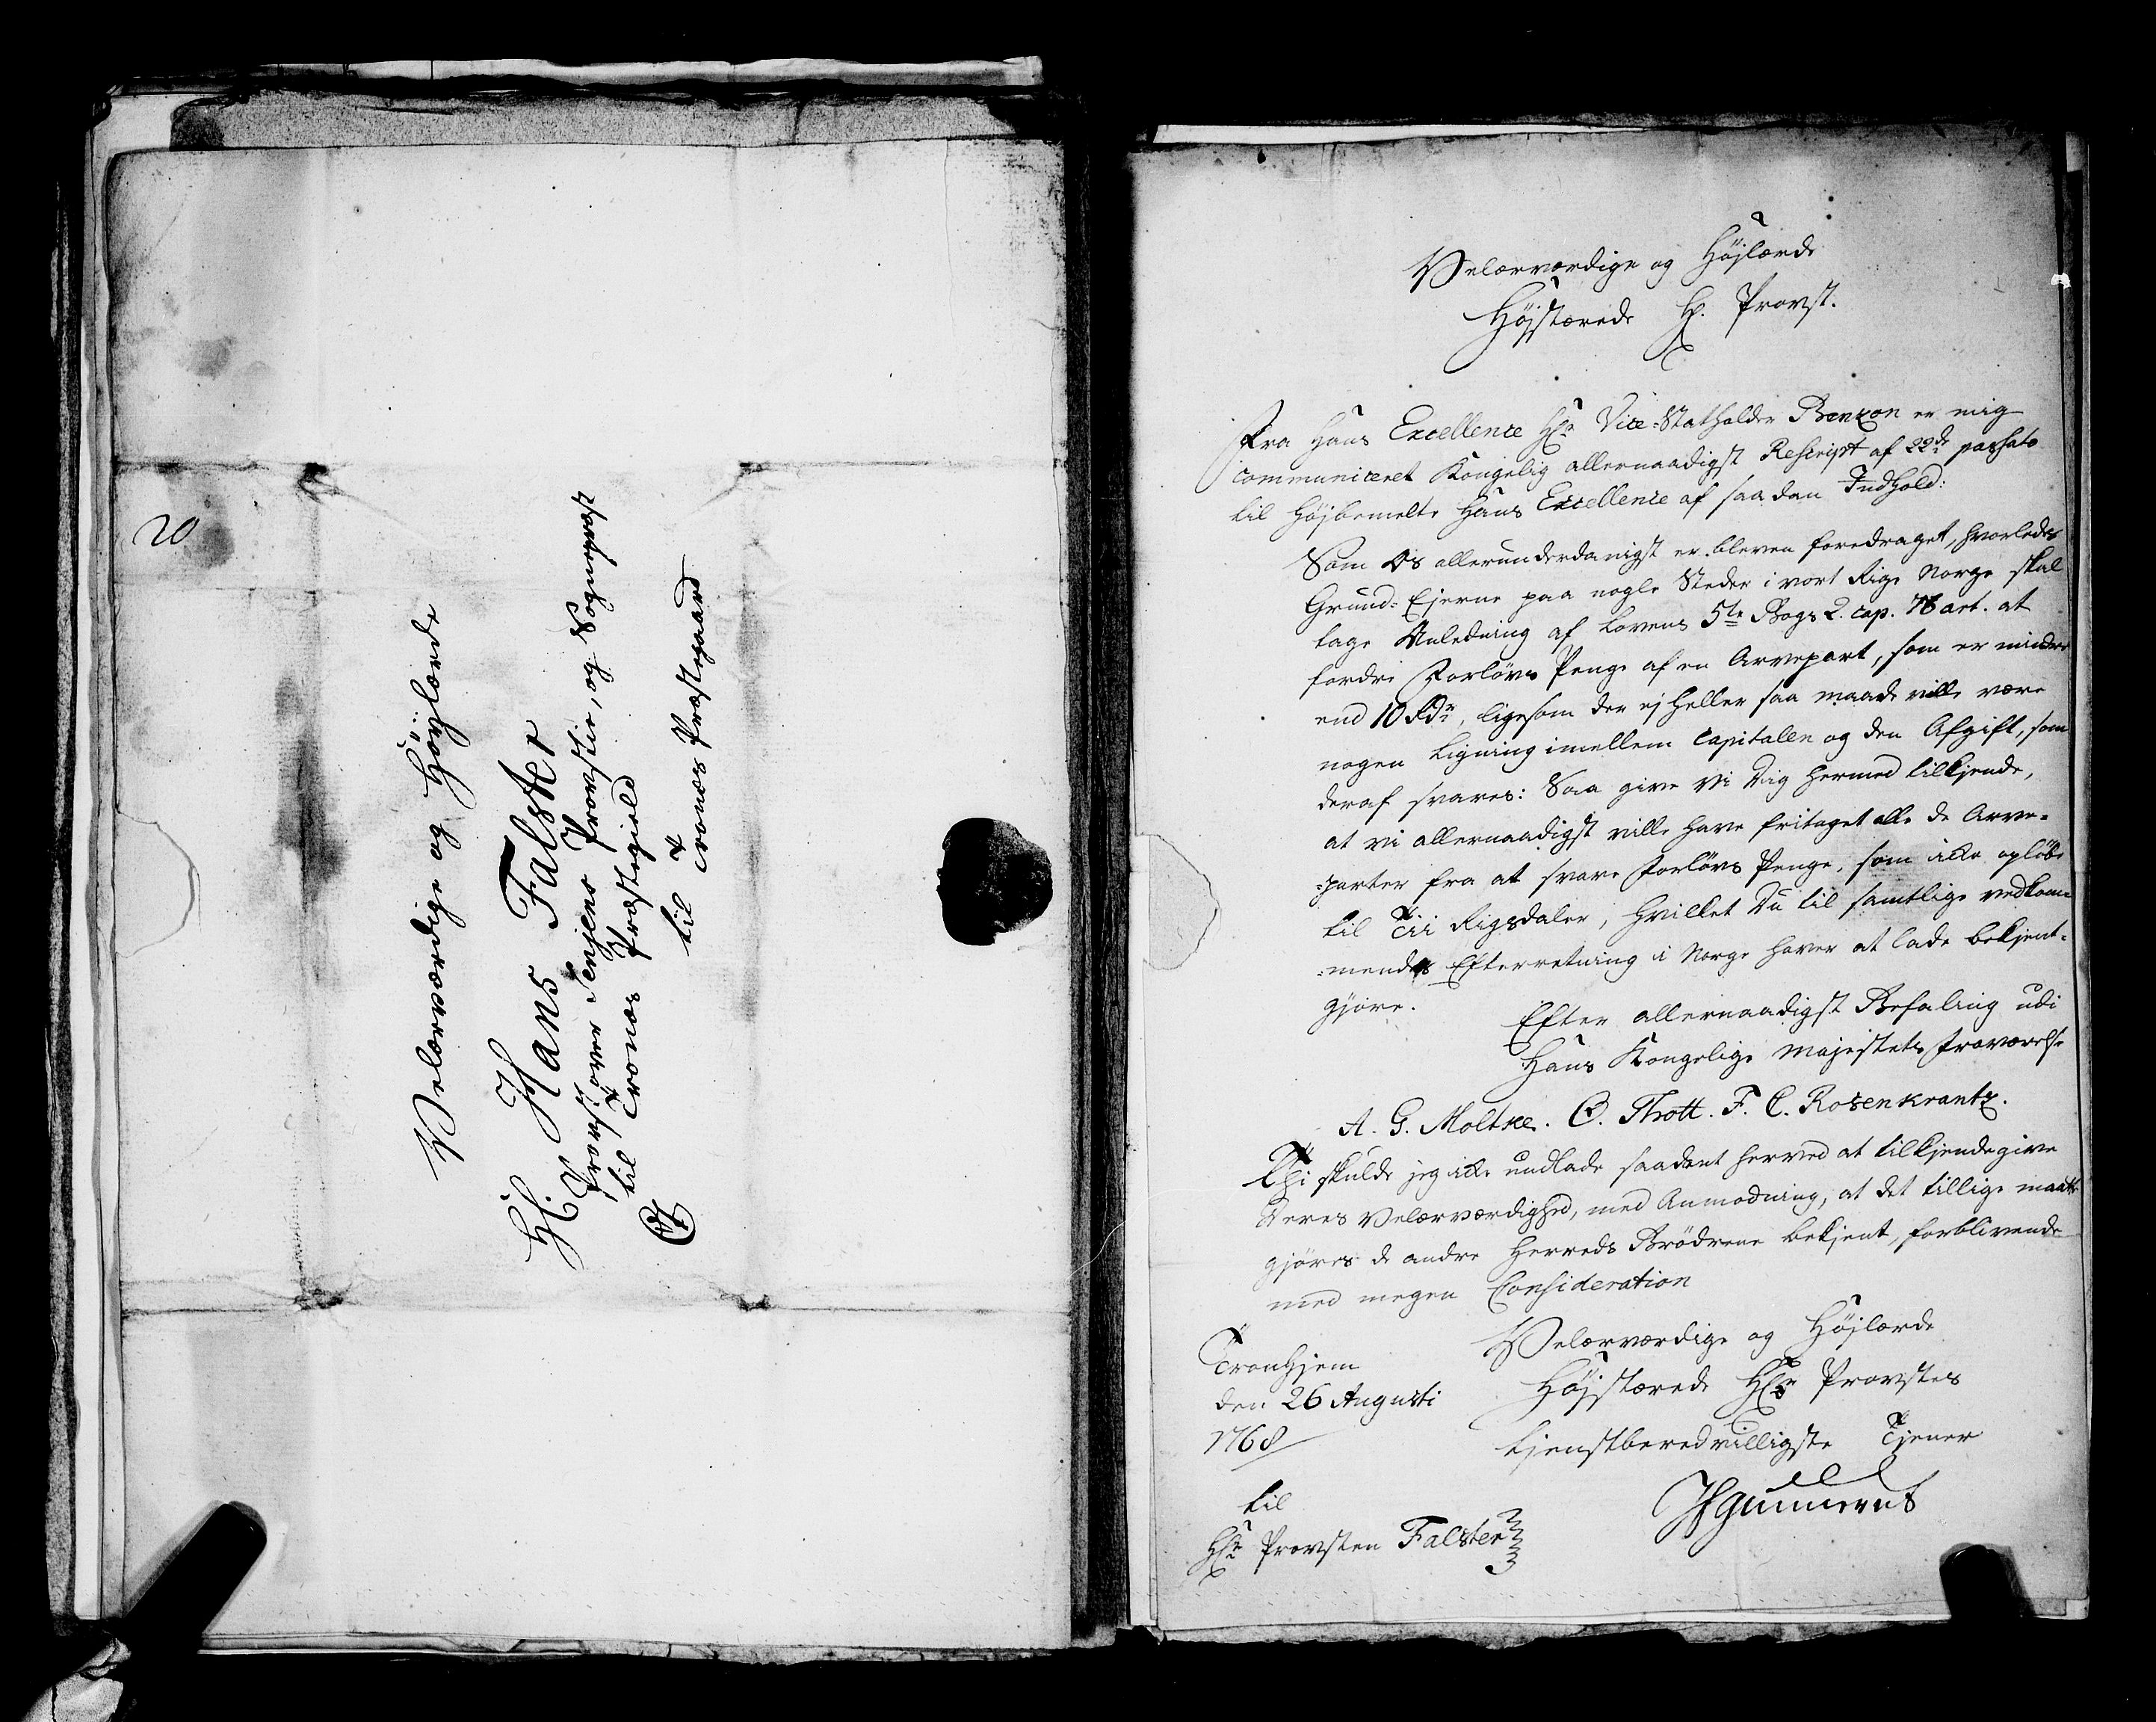 20
Velærværdige og Høylærde
Hr. Hans Falster
Provst over Senjens Provstie, og Sogneprest
til Tronæs Præstegield
til Tronæs Præstegaard
Velærværdige og Højlærde
Højstærede Hr. Provst.
Fra Hans Excellence Hr. Vice-Statholder Benzon er mig
communiceret Kongelig allernaadigst Rescript af 22de passato
til Højbemelte Hans Excellence af saadan Indhold:
Som Os allerunderdanigst er bleven foredraget, hvorledes
Grund-Ejerne paa nogle Steder i vort Rige Norge skal
tage Anledning af Lovens 5te Bogs 2. cap. 76 art. at
fordre Forlovs Penge af en Arvepart, som er mindre
end 10 Rdr, ligesom der ej heller saa maade ville være
nogen Ligning imellem Capitalen og den Afgift, som
deraf svares: Saa give Vi Dig hermed tilkjende,
at vi allernaadigst ville have fritaget alle de Arve-
-parter fra at svare Forlovs Penge, som icke opløbe
til Tii Rigsdaler, hvilket Du til samtlige vedkom-
-mendes Efterretning i Norge haver at lade bekjent-
gjøre.
Efter allernaadigst Befaling udi
Hans Kongelige Majestets Fraværelse
A. G. Moltke. O. Thott. F. C. Rosenkrantz.
Thi skulde jeg icke undlade saadant herved at tilkjendegive
Deres Velærværdighed, med Anmodning, at det tillige maatte
gjøres de andre Herreds Brødrene bekjent, forblivende
med megen Consideration
Velærværdige og Højlærde
Højstærede Hr. Provstes
tjenstberedvilligste Tjener
Tronhjem
den 26 Augusti
1768
JEGunnerus
til
Hr. Provsten Falster